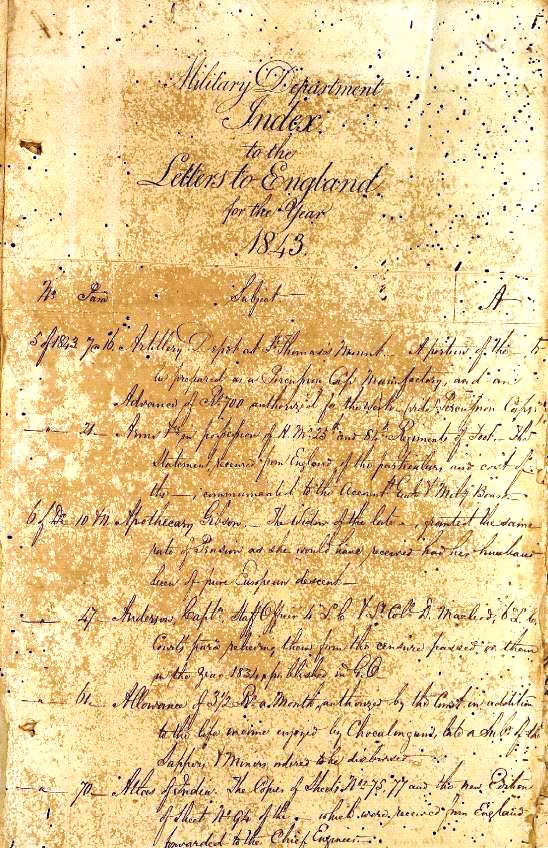 Military Department
Index
to the
Letters to England
for the Year
1843
No Para Subject A
5 of 1843 7 a 16 Artillery Depot at St Thomas's Mount. A portion of the —
to prepared as a Percussion Caps Manufactory, and an
Advance of Rs 700 authorized for the works. Vide Percussion Caps
—"— 21 — Arms in possession of H. Ms 25th and Regiments of Foot — The
Statement received from England of the particulars and cost of
the —, communicated to the Accountt Genl & Mily Board —
6 of Do 10 Apothecary Gibson, — The Widow of the late —, granted the same
rate of Pension as she would have received had her husband
been of pure European descent —
— 47 — Anderson, Captn, Staff Officer & Lt Coll D. Macleod, 6 L. C.
Courts para relieving them from the censure passed on them
in the year 1834, published in G.O.
—"— 61 — Allowance of 3½ Rs a Month, authorized by the Court in addition
to the life income enjoyed by late a of the
Sappers & Miners, ordered to be disbursed
—"— 70 — Atlas of India. The Copies of Sheets Nos 75, 77 and the new Edition
of Sheet No 94 of the — which were received from England
forwarded to the Chief Engineer —